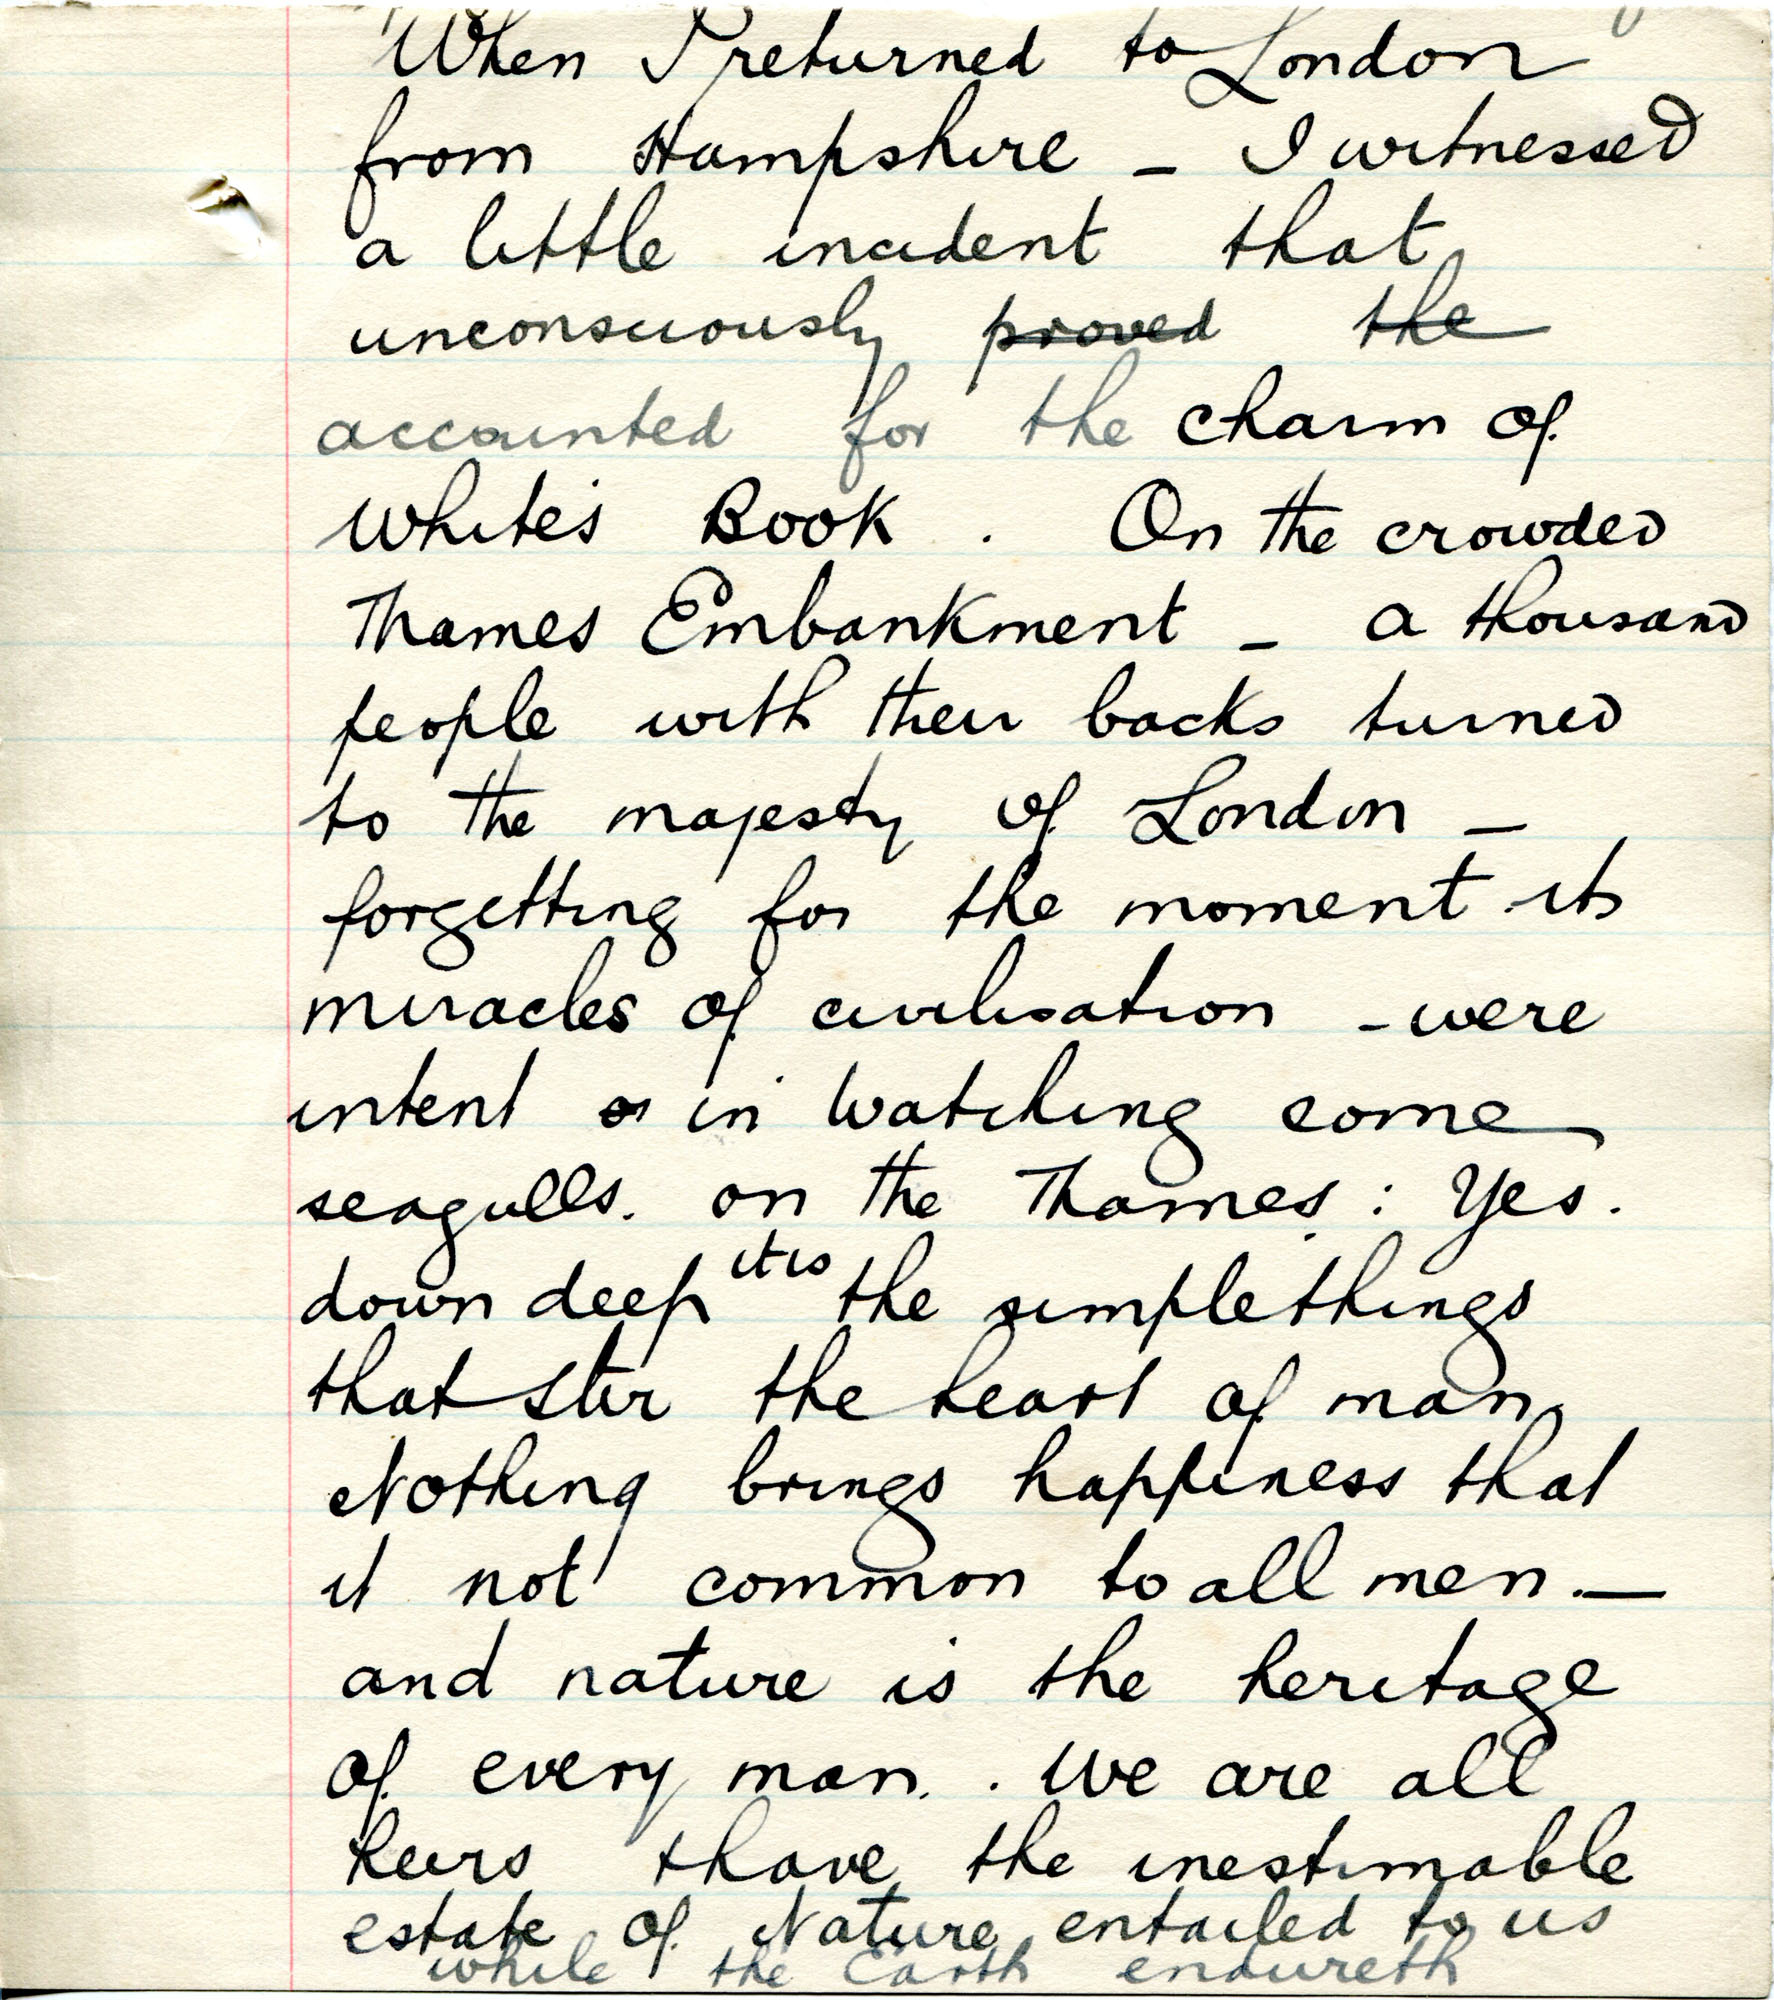 When I returned to London
from Hampshire – I witnessed
a little incident that
unconsciously proved the
accounted for the charm of
White's Book . On the crowded
Thames Embankment – a thousand
people with their backs turned
to the majesty of London –
forgetting for the moment its
miracles of civilisation – were
intent on in watching some
seagulls. on the Thames : Yes.
down deep it is the simple things
that stir the heart of man.
Nothing brings happiness that
it not common to all men. —
and nature is the heritage
of every man. . We are all
heirs & have the inestimable
estate of Nature entailed to us
while the Earth endureth